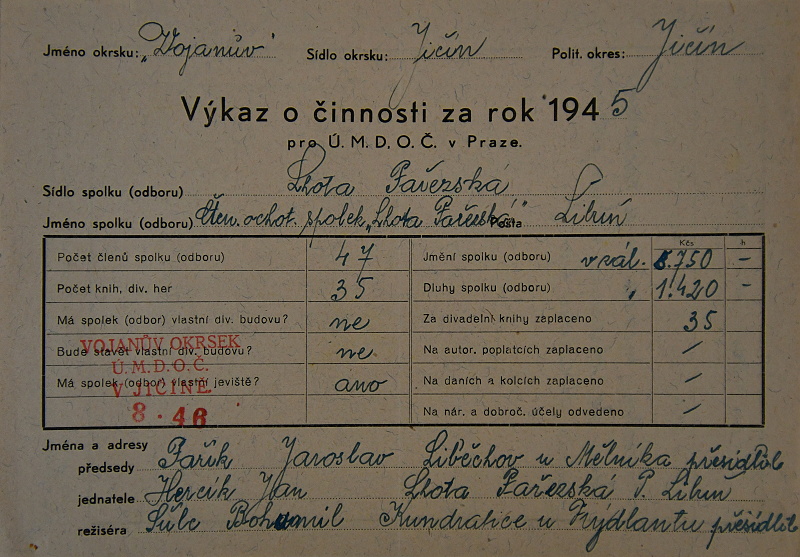 Jméno okrsku: „Vojanův" Sídlo okrsku: Jičín Polit. okres: Jičín
Výkaz o činnosti za rok 1945
pro Ú. M. D. O. Č. v Praze.
Sídlo spolku (odboru) Lhota Pařezská
Jméno spolku (odboru) Čten. ochot. spolek „Lhota Pařezská" Pošta Libuň
Kčs h
Počet členů spolku (odboru) 47 Jmění spolku (odboru) v zál. 8.750 —
Počet knih, div. her 35 Dluhy spolku (odboru) „ 1.420 —
Má spolek (odbor) vlastní div. budovu? ne Za divadelní knihy zaplaceno 35
Bude stavět vlastní div. budovu? ne Na autor. poplatcích zaplaceno /
Má spolek (odbor) vlastní jeviště? ano Na daních a kolcích zaplaceno /
Na nár. a dobroč. účely odvedeno /
VOJANŮV OKRSEK
Ú.M.D.O.Č.
V JIČÍNĚ
8 - 46
Jména a adresy
předsedy Pařík Jaroslav Liběchov u Mělníka přesídlil
jednatele Hercík Jan Lhota Pařezská P. Libuň
režiséra Šulc Bohumil Kundratice u Frýdlantu přesídlil